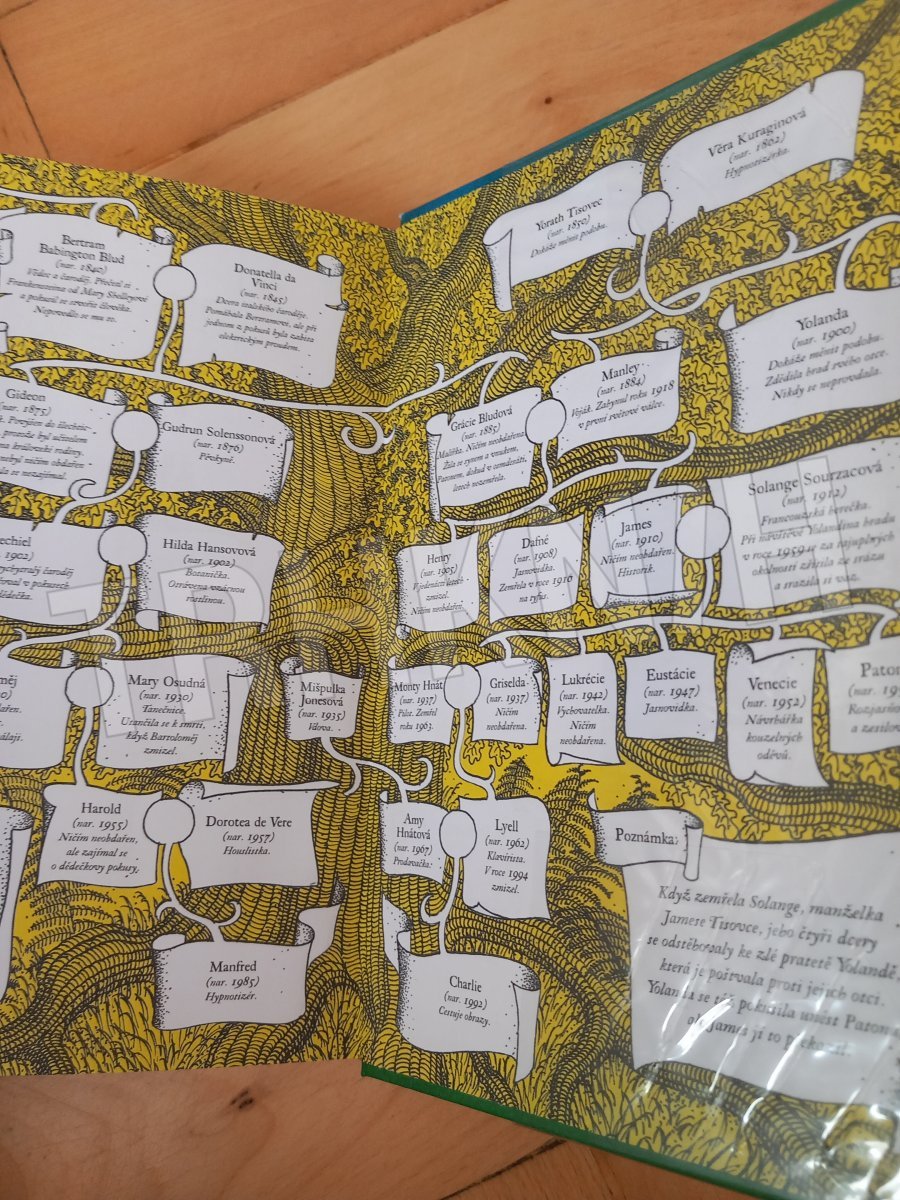 Věra Kuraginová
(nar. 1862)
Hypnotizérka.
Yorath Tisovec
(nar. 1850)
Dokáže měnit podobu.
Bertram
Babington Blud
(nar. 1840)
Vědec a čaroděj. Přečetl si
Frankensteina od Mary Shelleyové
a pokusil se stvořit člověka.
Nepovedlo se mu to.
Donatella da
Vinci
(nar. 1845)
Dcera italského čaroděje.
Pomáhala Bertramovi, ale při
jednom z pokusů byla zabita
elektrickým proudem.
Yolanda
(nar. 1900)
Dokáže měnit podobu.
Zdědila hrad svého otce.
Nikdy se neprovdala.
Manley
(nar. 1884)
Voják. Zahynul roku 1918
v první světové válce.
Grácie Bludová
(nar. 1885)
Malířka. Ničím neobdařena.
Žila se synem a vnukem,
Patonem, dokud v osmdesáti
letech nezemřela.
Gideon
(nar. 1875)
Gudrun Solenssonová
(nar. 1876)
Pěvkyně.
Solange Sourzacová
(nar. 1912)
Francouzská herečka.
Při návštěvě Yolandina hradu
v roce 1959 si za tajuplných
okolností zřítila ze sráza
a srazila si vaz.
James
(nar. 1910)
Ničím neobdařen.
Historik.
Dafné
(nar. 1908)
Jasnovidka.
Zemřela v roce 1910
na tyfus.
Henry
(nar. 1905)
V jedenácti letech
zmizel.
Ničím neobdařen.
echiel
. 1902)
Hilda Hansovová
(nar. 1902)
Botanička.
Otrávena vzácnou
rostlinou.
Mary Osudná
(nar. 1930)
Tanečnice.
Utančila se k smrti,
když Bartoloměj
zmizel.
Mišpulka
Jonesová
(nar. 1935)
Vdova.
Monty Hnát
(nar. 1937)
Pilot. Zemřel
roku 1963.
Griselda
(nar. 1937)
Ničím
neobdařena.
Lukrécie
(nar. 1942)
Vychovatelka.
Ničím
neobdařena.
Eustácie
(nar. 1947)
Jasnovidka.
Venecie
(nar. 1952)
Návrhářka
kouzelných
oděvů.
Paton
Harold
(nar. 1955)
Ničím neobdařen,
ale zajímal se
o dědečkovy pokusy.
Dorotea de Vere
(nar. 1957)
Houslistka.
Amy
Hnátová
(nar. 1967)
Prodavačka.
Lyell
(nar. 1962)
Klavírista.
V roce 1994
zmizel.
Manfred
(nar. 1985)
Hypnotizér.
Charlie
(nar. 1992)
Cestuje obrazy.
Poznámka:
Když zemřela Solange, manželka
Jamese Tisovce, jeho čtyři dcery
se odstěhovaly ke zlé pratetě Yolandě,
která je poštvala proti jejich otci.
Yolanda se též pokusila unést Patona,
ale James jí to překazil.